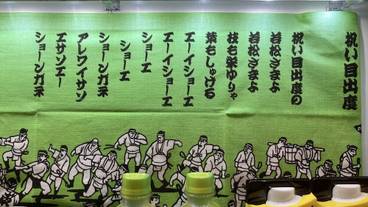 祝い目出度
祝い目出度の
若松さまよ
若松さまよ
枝も栄ゆりゃ
葉もしゅげる
エーイショーエ
エーイショーエ
ショーエ
ショーエ
ションガネ
アレワイサソ
エサソエー
ションガネ